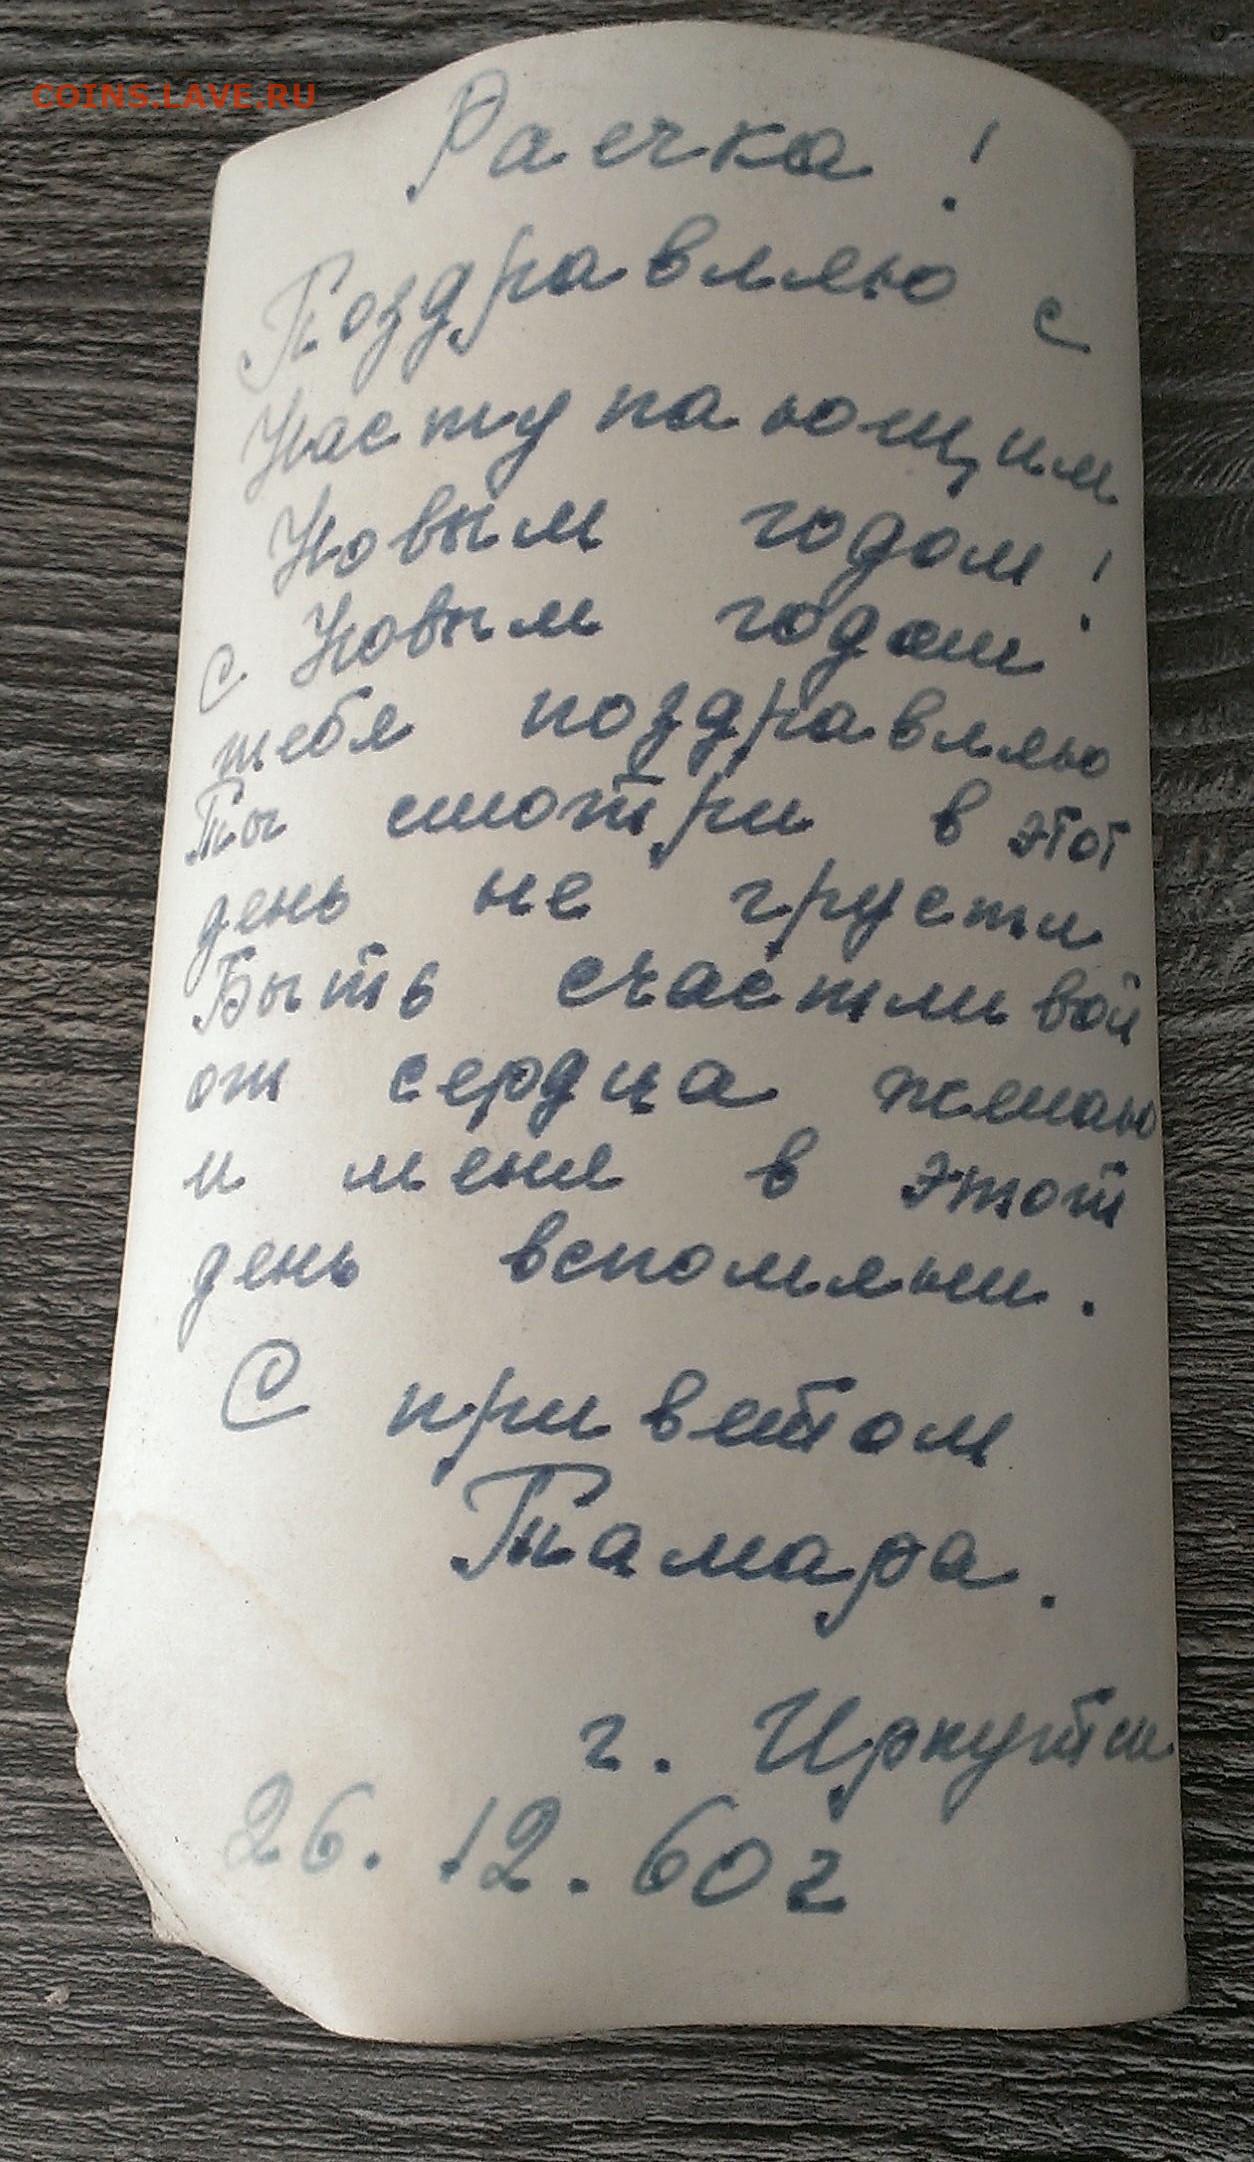 COINS.LAVE.RU
Раечка!
Поздравляю с
Наступающим
Новым годом!
С Новым годом
тебя поздравляю
Ты смотри в этот
день не грусти
Быть счастливой
от сердца желаю
и меня в этот
день вспомяни.
С приветом
Тамара.
г. Иркутск
26.12.60г